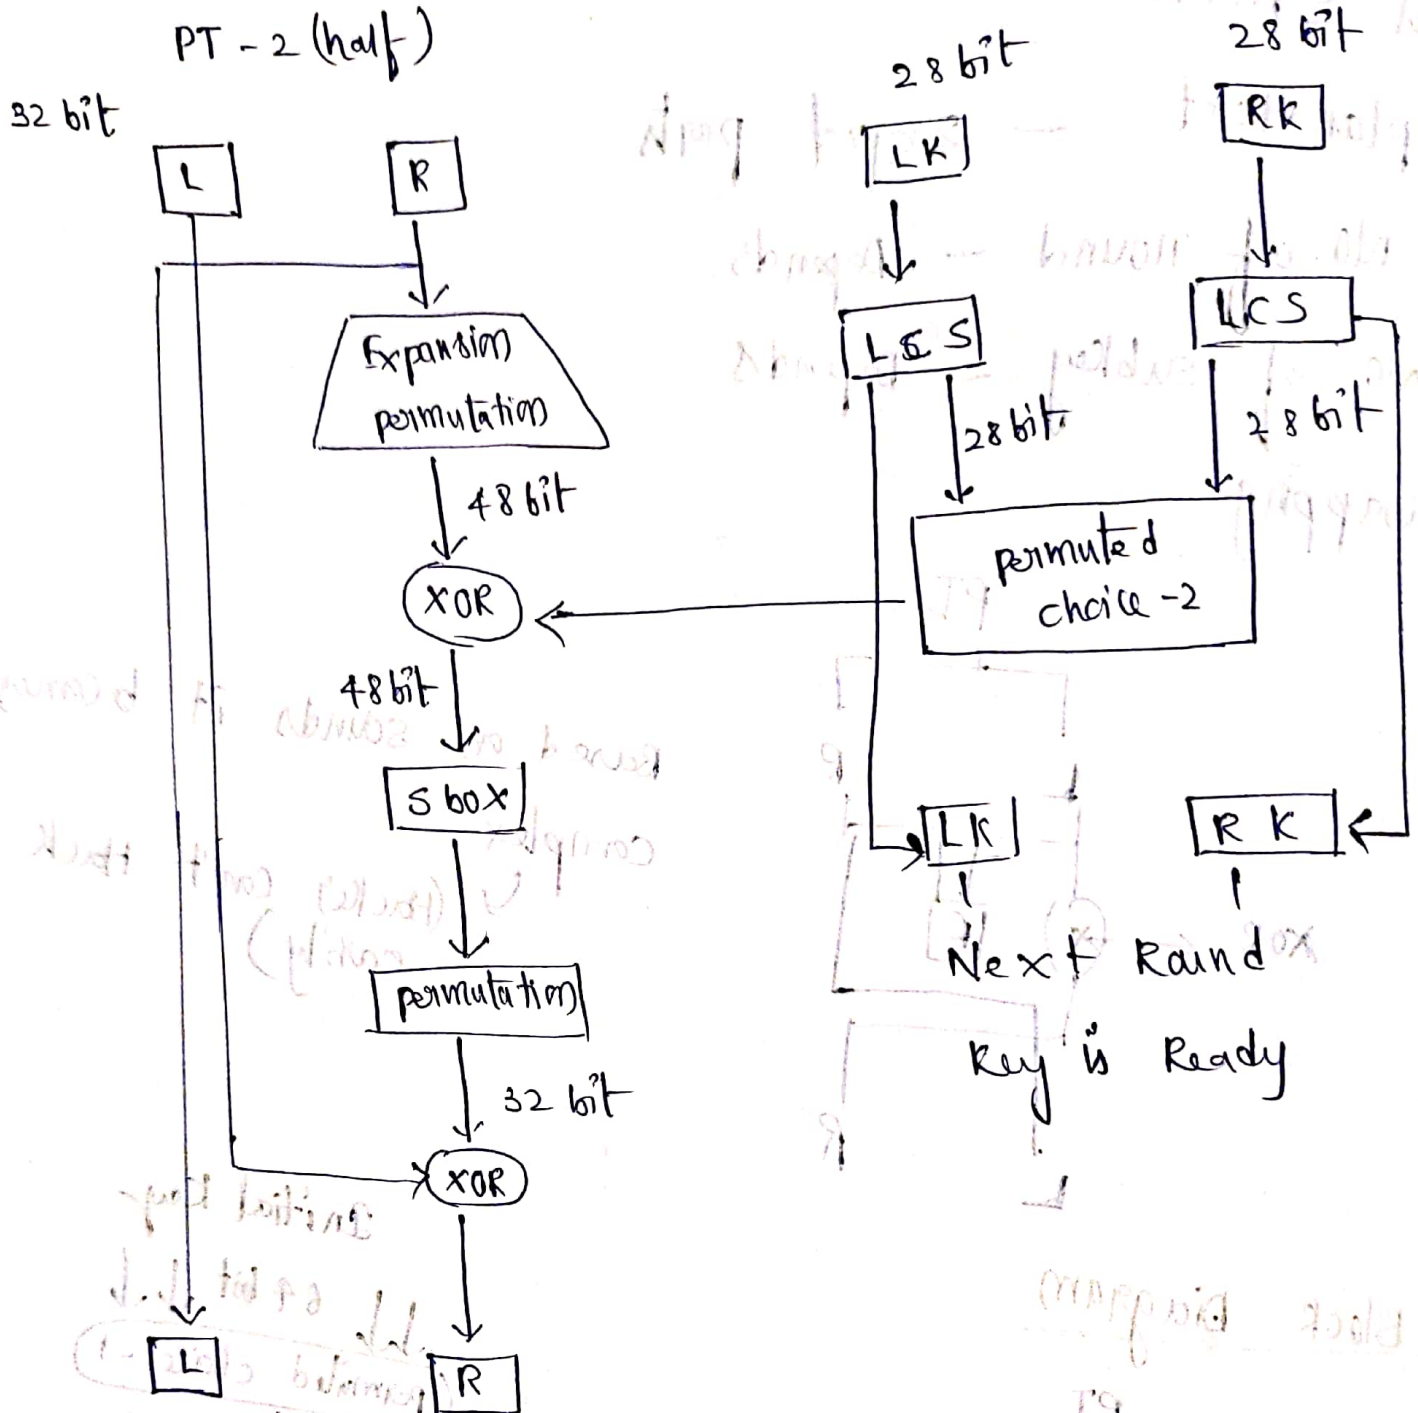 PT - 2 (half)
32 bit
L
R
Expansion
permutation
48 bit
XOR
48 bit
S box
permutation
32 bit
XOR
L
R
28 bit
28 bit
LK
RK
LCS
LCS
28 bit
28 bit
permuted
choice -2
LK
RK
Next Round
Key is Ready